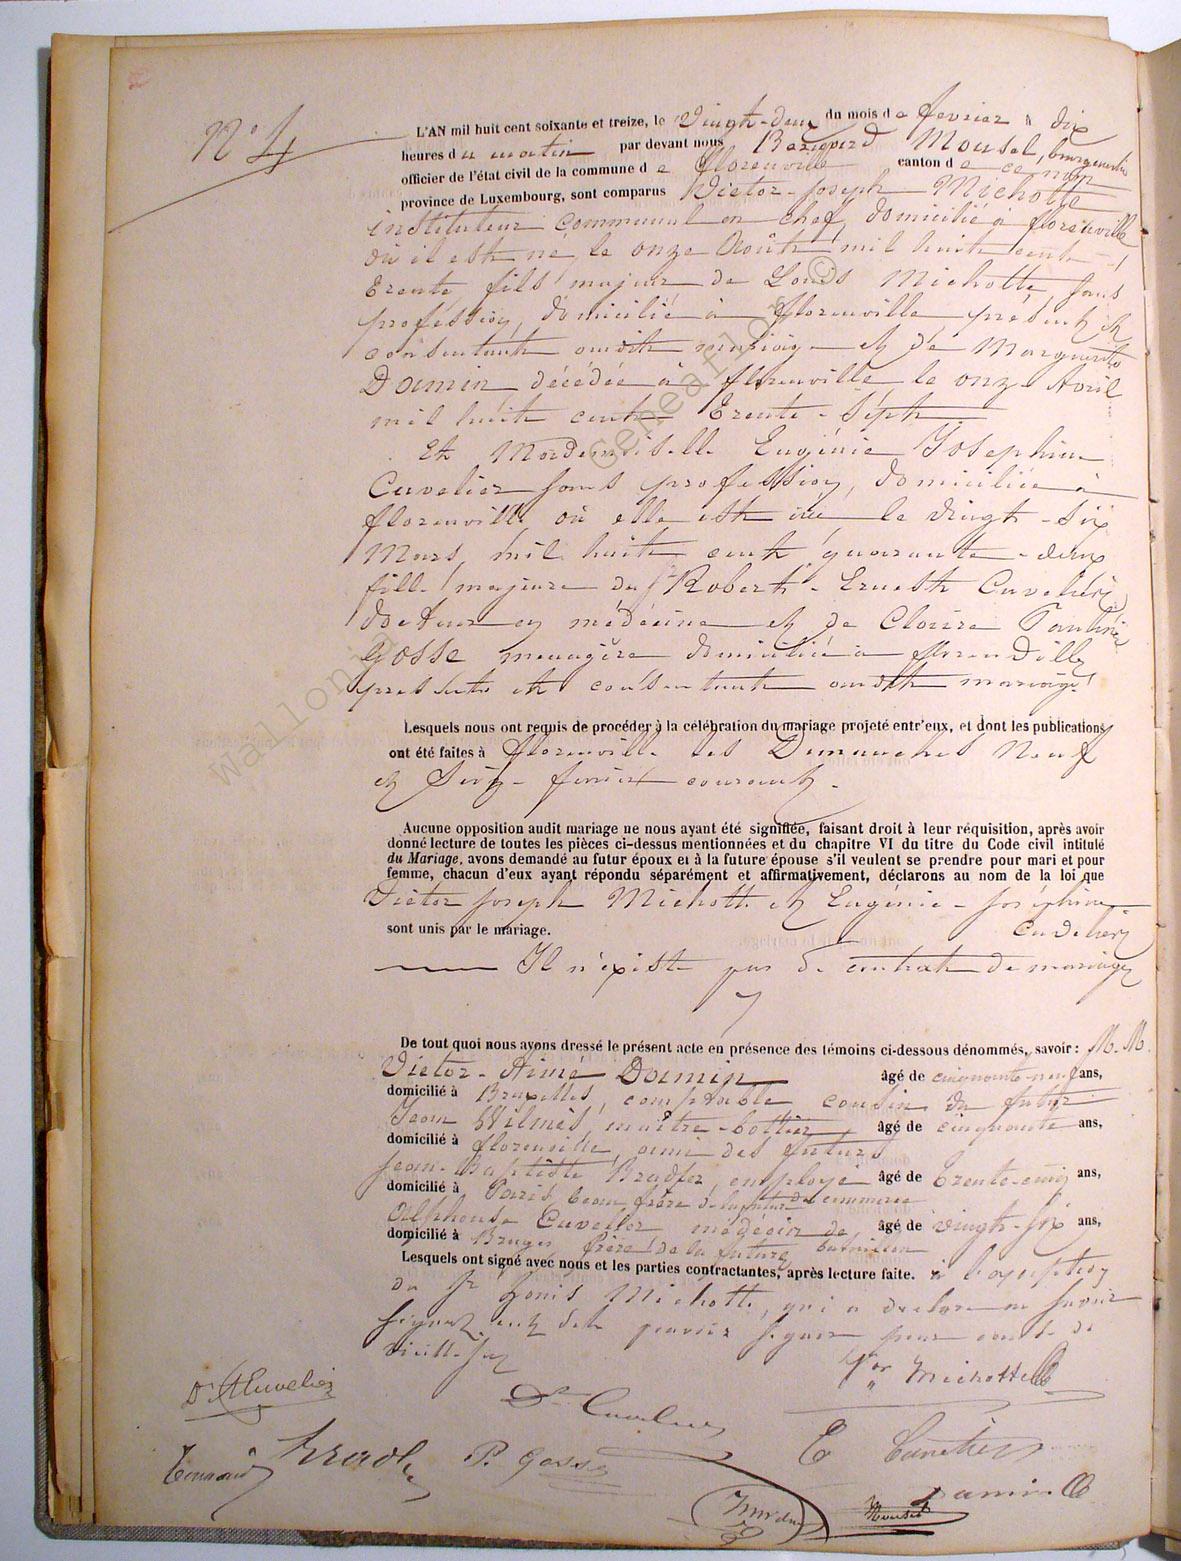 N° 4
L'AN mil huit cent soixante et treize, le Vingt-deux du mois de fevrier à dix
heures du matin par devant nous Mousel, bourgmestre
officier de l'état civil de la commune de florenville canton de ce nom
province de Luxembourg, sont comparus Victor-Joseph Michotte
instituteur communal en chef, domicilié à florenville
où il est né, le onze Août mil huit cent
trente fils majeur de Louis Michotte sans
profession, domicilié à florenville, présent et
consentant audit mariage et de Marguerite
Damin décédée à florenville le onze Avril
mil huit cent trente-sept
Et Mademoiselle Eugénie Josephine
Cuvelier sans profession, domiciliée à
florenville où elle est née le vingt-six
Mars mil huit cent quarante-deux
fille majeure du Sr Robert-Ernest Cuvelier
docteur en médécine et de Claire Pauline
Gosse menagère domiciliée à florenville
présents et consentant audit mariage
Lesquels nous ont requis de procéder à la célébration du mariage projeté entr'eux, et dont les publications
ont été faites à florenville les Dimanches Neuf
et Seize fevrier courant.
Aucune opposition audit mariage ne nous ayant été signifiée, faisant droit à leur réquisition, après avoir
donné lecture de toutes les pièces ci-dessus mentionnées et du chapitre VI du titre du Code civil intitulé
du Mariage, avons demandé au futur époux et à la future épouse s'il veulent se prendre pour mari et pour
femme, chacun d'eux ayant répondu séparément et affirmativement, déclarons au nom de la loi que
Victor Joseph Michotte et Eugénie-Joséphine
Cuvelier
sont unis par le mariage.
Il n'existe pas de contrat de mariage
De tout quoi nous avons dressé le présent acte en présence des témoins ci-dessous dénommés, savoir : M.M.
Victor-Aimé Damin âgé de cinquante-neuf ans,
domicilié à Bruxelles, comptable cousin du futur
Jean Wilmes, maître-bottier âgé de cinquante ans,
domicilié à florenville, ami des futurs
Jean-Baptiste Bradfer, employé âgé de trente-cinq ans,
de commerce
domicilié à Paris, beau frère de la future
Alphonse Cuvelier médecin de âgé de vingt-six ans,
bataillon
domicilié à Bruges frère de la future
Lesquels ont signé avec nous et les parties contractantes, après lecture faite. à l'exception
du Sr Louis Michotte, qui a declaré ne savoir
signer pour cause de
vieillesse
Vor Michotte
Dr A Cuvelier
Dr Cuvelier
E Cuvelier
P. Gosse
Damin
Mousel
Wallonia Geneaflor ©